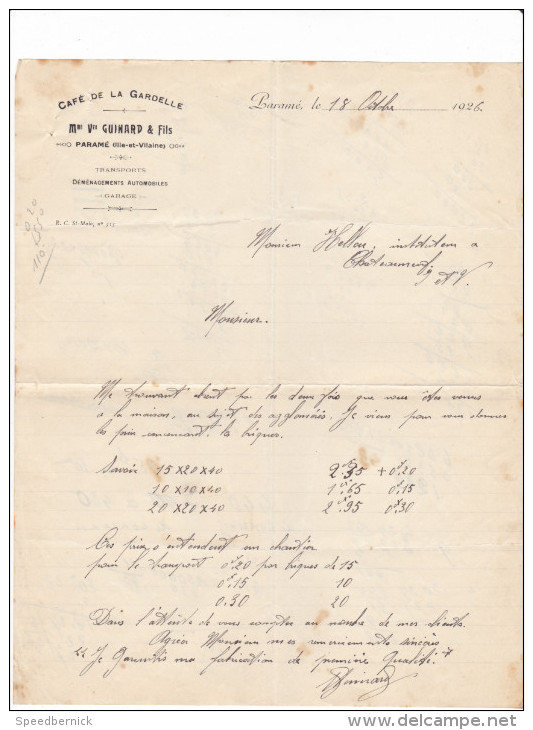 CAFÉ DE LA GARDELLE
Mme Vve GUINARD & Fils
PARAMÉ (Ille-et-Vilaine)
TRANSPORTS
DÉMÉNAGEMENTS AUTOMOBILES
GARAGE
R. C. St-Malo, n° 
Paramé, le 18 Octobre 1926
0.20
110
Monsieur Hellou, instituteur a
Chateauneuf
I et V.
Monsieur.
Me trouvant absent par les deux fois que vous êtes venus
a la maison, au sujet des agglomérés. Je viens pour vous donner
les prix concernant la briques.
Savoir 15 x 20 x 40 2f35 + 0f20
10 x 10 x 40 1f65 0f15
20 x 20 x 40 2f95 0f30
Ces prix s'entendent au chantier
pour le transport 0f20 par briques de 15
0f15 10
0.30 20
Dans l'attente de vous compter au nombre de mes clients.
Agréer Monsieur mes remerciements sincères
Je Garantis ma fabrication de première Qualité.
Guinard
Speedbernick
www.delcampe.net